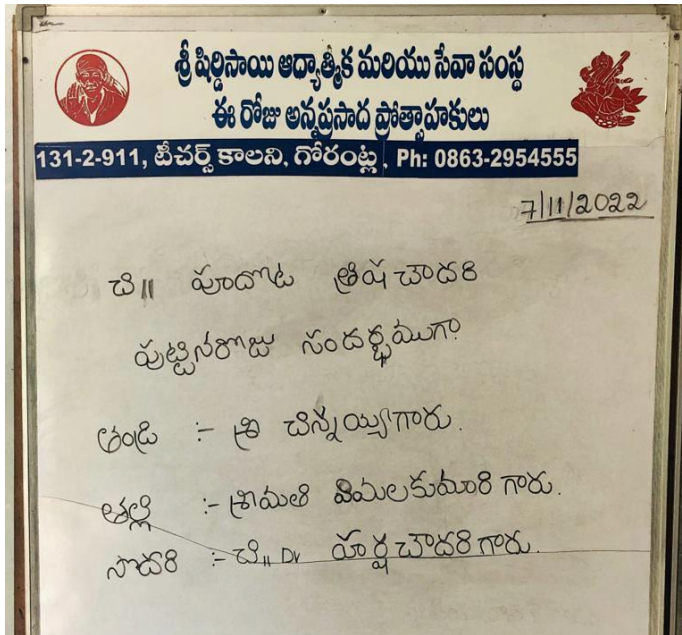 శ్రీ షిర్డిసాయి ఆధ్యాత్మిక మరియు సేవా సంస్థ
ఈ రోజు అన్నప్రసాద ప్రోత్సాహకులు
131-2-911, టీచర్స్ కాలని, గోరంట్ల, Ph: 0863-2954555
7/11/2022
చి॥ పూదోట త్రిష చౌదరి
పుట్టినరోజు సందర్భముగా
తండ్రి :- శ్రీ చిన్నయ్యిగారు.
తల్లి :- శ్రీమతి విమలకుమారి గారు.
సోదరి :- చి॥ Dr హర్ష చౌదరి గారు.